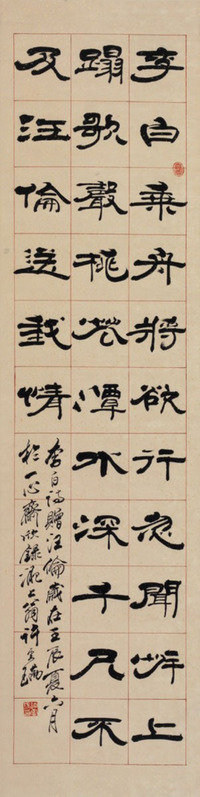 李白乘舟將欲行忽聞岸上
蹋歌聲桃花潭水深千尺不
及汪倫送我情
李白詩贈汪倫歲在壬辰夏六月
於一心齋 錄 上翁許